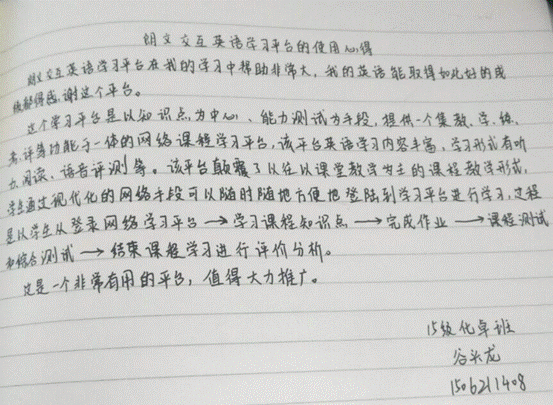 朗文交互英语学习平台的使用心得
朗文交互英语学习平台在我的学习中帮助非常大,我的英语能取得如此好的成
绩都得感谢这个平台。
这个学习平台是以知识点为中心、能力测试为手段,提供一个集教、学、练、
考、评等功能于一体的网络课程学习平台,该平台英语学习内容丰富,学习形式有听
力、阅读、语音评测等。该平台颠覆了以往以课堂教学为主的课程教学形式,
学生通过现代化的网络手段可以随时随地方便地登陆到学习平台进行学习,过程
是以学生从登录网络学习平台→学习课程知识点→完成作业→课程测试
和综合测试→结束课程学习进行评价分析。
这是一个非常有用的平台,值得大力推广。
15级化卓班
谷兴龙
1506211408